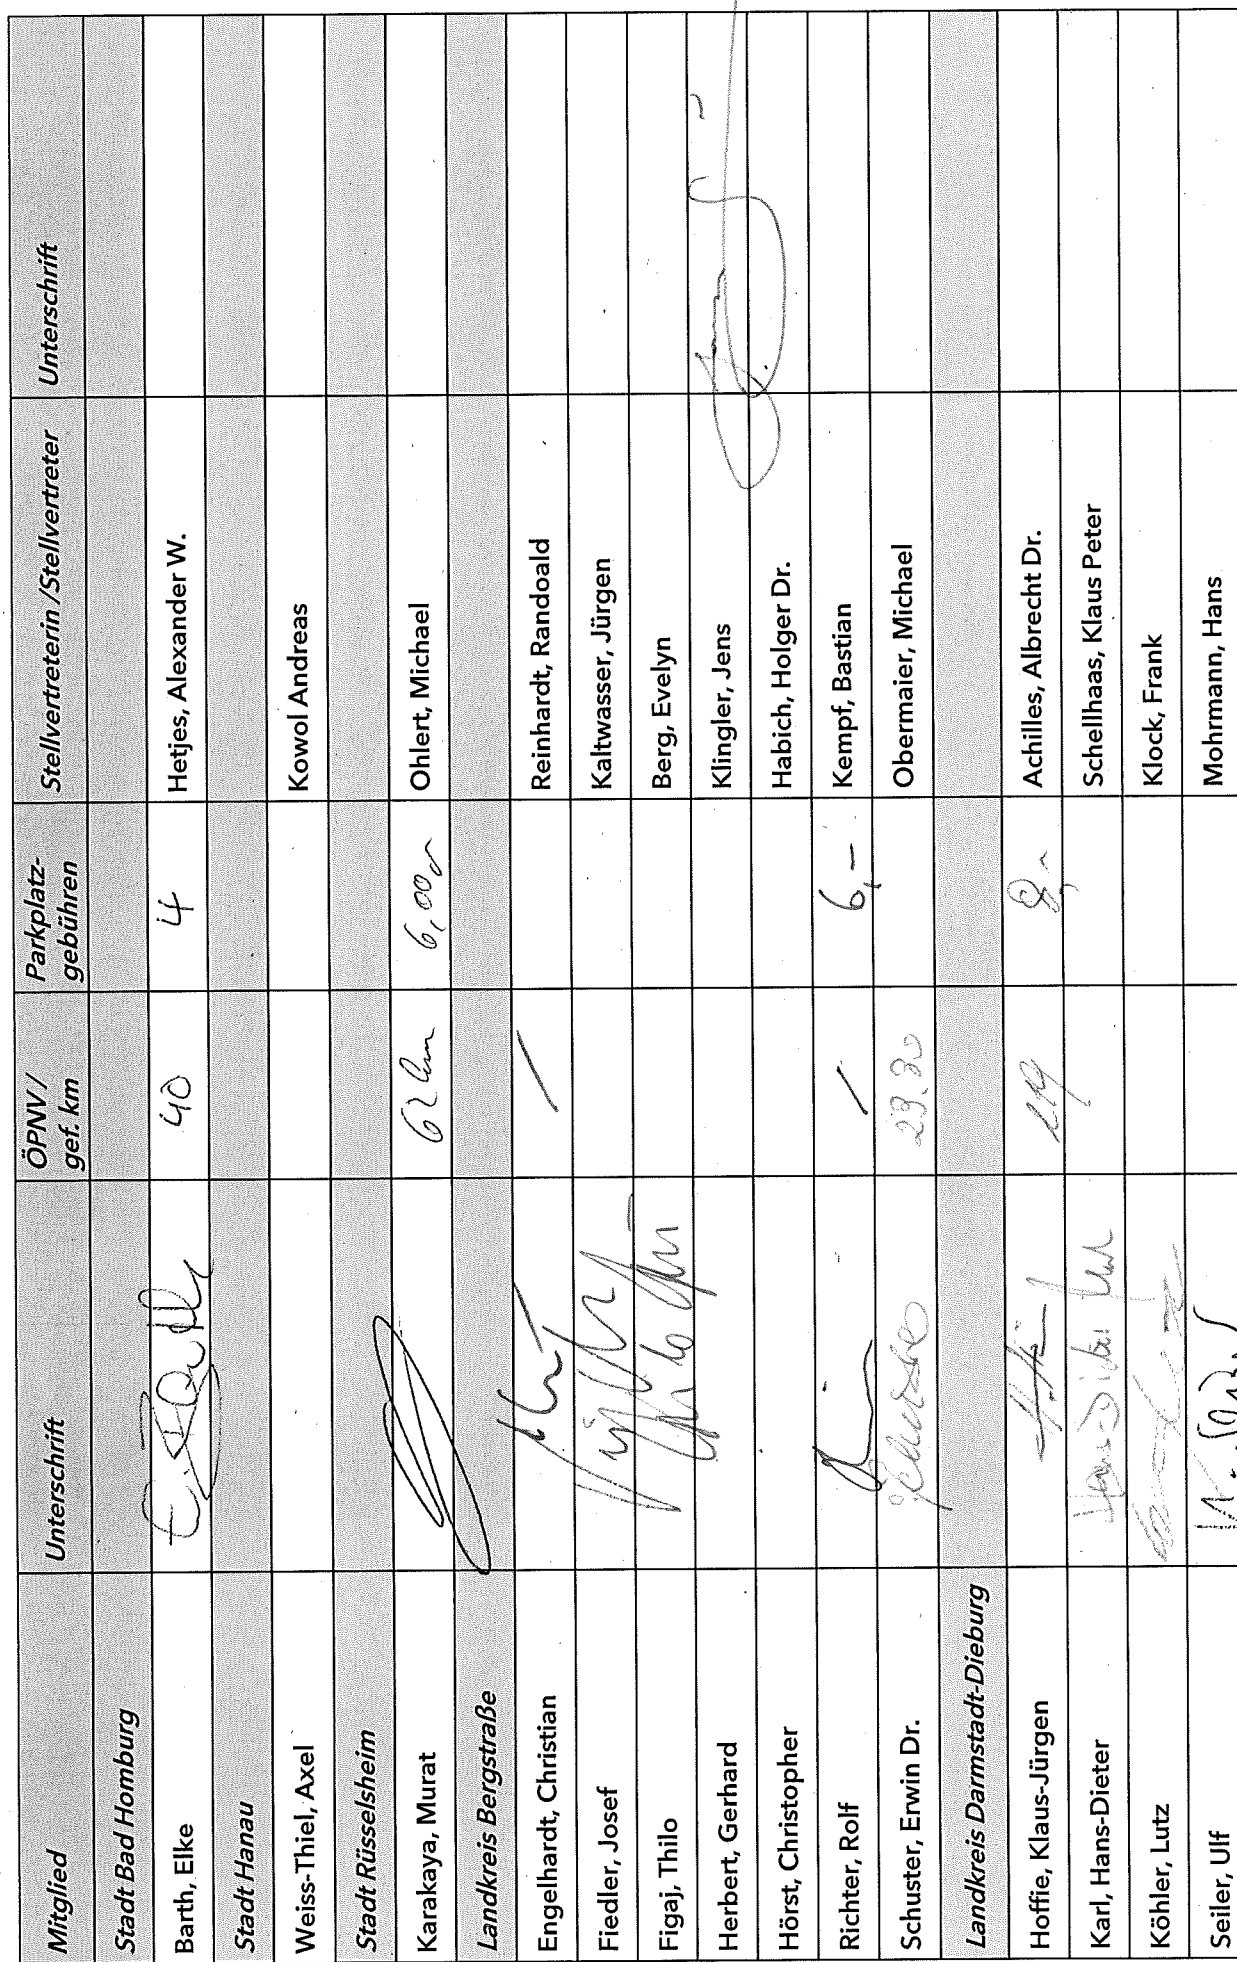 Mitglied Unterschrift ÖPNV / gef. km Parkplatz-gebühren Stellvertreterin /Stellvertreter Unterschrift
Stadt Bad Homburg
Barth, Elke 40 4 Hetjes, Alexander W.
Stadt Hanau
Weiss-Thiel, Axel Kowol Andreas
Stadt Rüsselsheim
Karakaya, Murat 62 km 6,00 Ohlert, Michael
Landkreis Bergstraße
Engelhardt, Christian Reinhardt, Randoald
Fiedler, Josef Kaltwasser, Jürgen
Figaj, Thilo Berg, Evelyn
Herbert, Gerhard Klingler, Jens
Hörst, Christopher Habich, Holger Dr.
Richter, Rolf / 6,– Kempf, Bastian
Schuster, Erwin Dr. Schuster 29.30 Obermaier, Michael
Landkreis Darmstadt-Dieburg
Hoffie, Klaus-Jürgen 8,- Achilles, Albrecht Dr.
Karl, Hans-Dieter Hans-Dieter Karl Schellhaas, Klaus Peter
Köhler, Lutz Klock, Frank
Seiler, Ulf Mohrmann, Hans